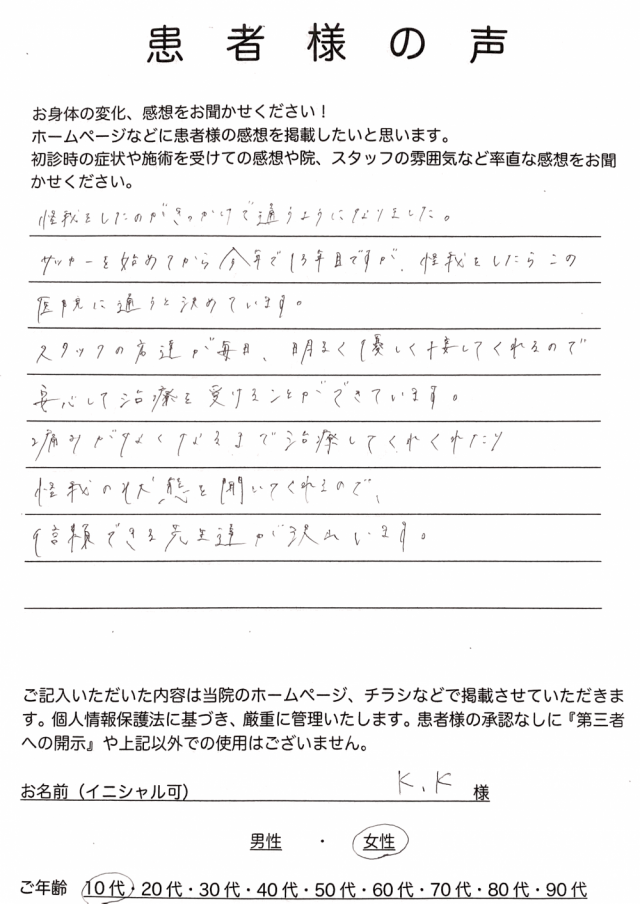 患者様の声
お身体の変化、感想をお聞かせください！
ホームページなどに患者様の感想を掲載したいと思います。
初診時の症状や施術を受けての感想や院、スタッフの雰囲気など率直な感想をお聞
かせください。
怪我をしたのがきっかけで通うようになりました。
サッカーを始めてから今年で13年目ですが、怪我をしたらこの
医院に通うと決めています。
スタッフの方達が毎日、明るく優しく接してくれるので
安心して治療を受けることができています。
痛みがなくなるまで治療してくれくれたり
怪我の状態を聞いてくれるので、
信頼できる先生達が沢山います。
ご記入いただいた内容は当院のホームページ、チラシなどで掲載させていただきま
す。個人情報保護法に基づき、厳重に管理いたします。患者様の承認なしに『第三者
への開示』や上記以外での使用はございません。
お名前（イニシャル可） K.K 様
男性 ・ 女性
ご年齢 10代・20代・30代・40代・50代・60代・70代・80代・90代